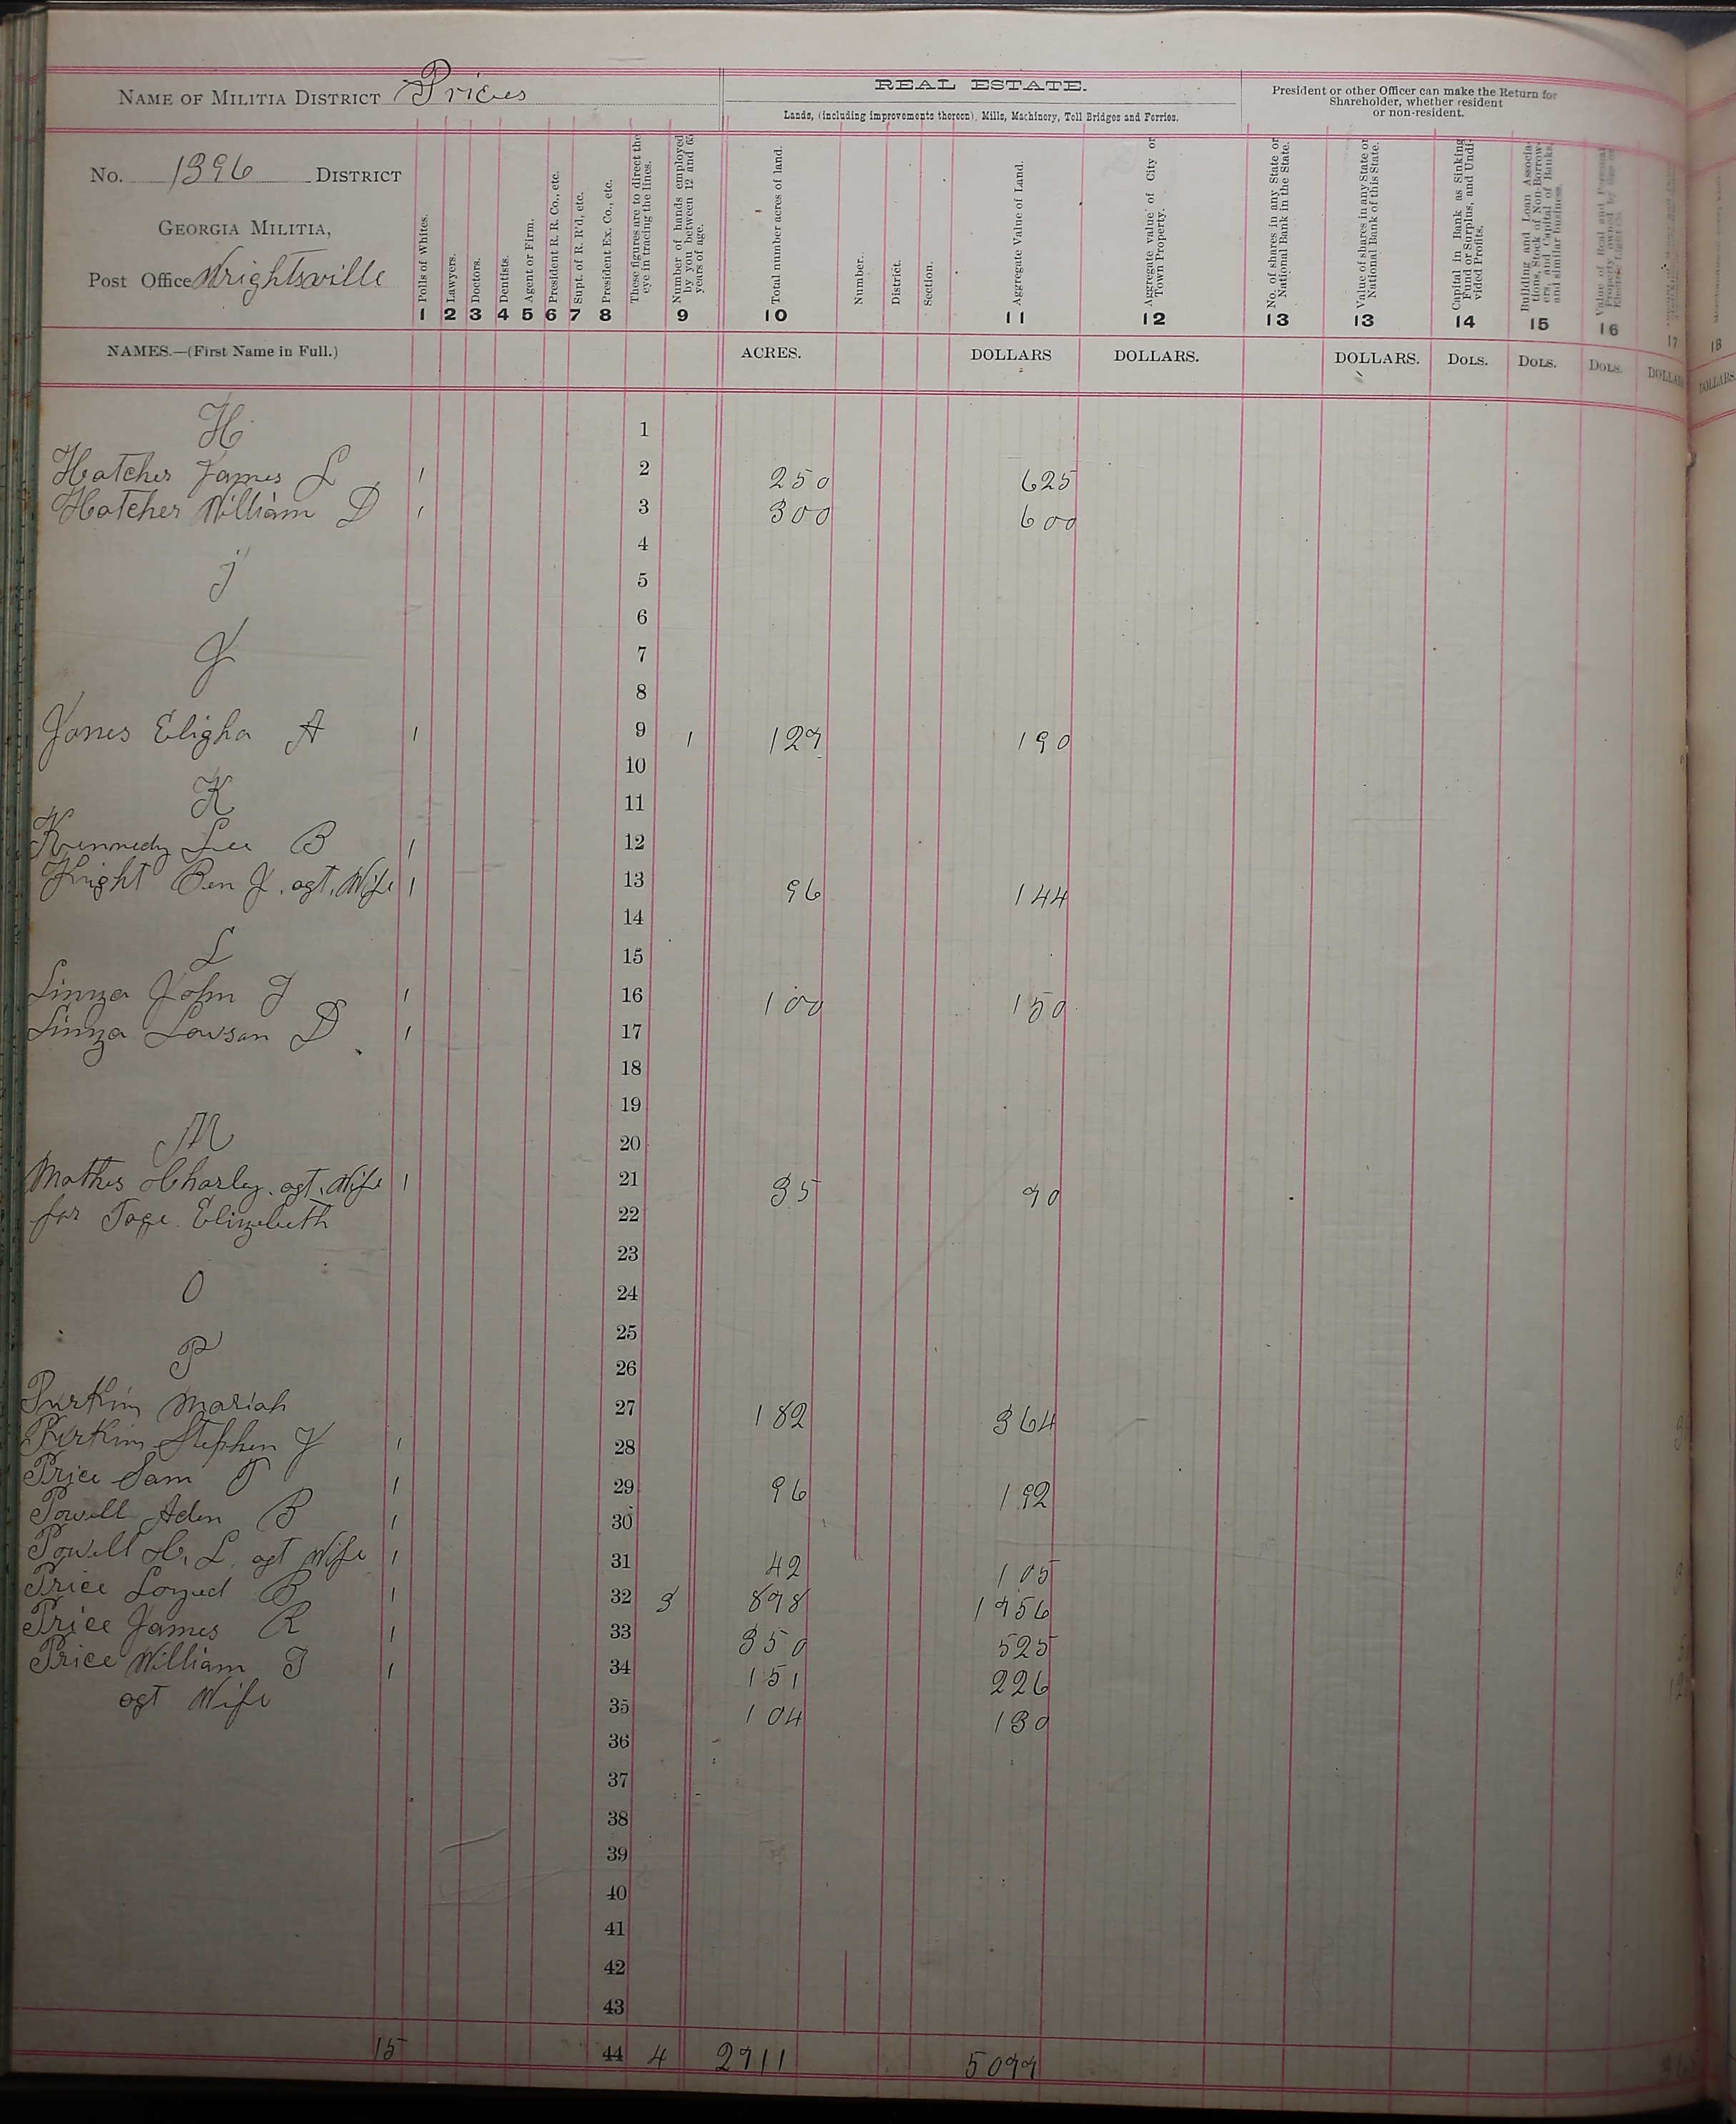 NAME OF MILITIA DISTRICT Prices
No. 1396 DISTRICT
GEORGIA MILITIA,
Post Office Wrightsville
REAL ESTATE.
Lands, (including improvements thereon), Mills, Machinery, Toll Bridges and Ferries.
President or other Officer can make the Return for
Shareholder, whether resident
or non-resident.
Polls of Whites. 1
Lawyers. 2
Doctors. 3
Dentists. 4
Agent or Firm. 5
President R. R. Co., etc. 6
Supt. of R. R'd, etc. 7
President Ex. Co., etc. 8
These figures are to direct the
eye in tracing the lines.
Number of hands employed
by you between 12 and 65
years of age. 9
Total number acres of land. 10
Number.
District.
Section.
Aggregate Value of Land. 11
Aggregate value of City or
Town Property. 12
No. of shares in any State or
National Bank in the State. 13
Value of shares in any State or
National Bank of this State. 13
Capital in Bank as Sinking
Fund or Surplus, and Undi-
vided Profits. 14
Building and Loan Associa-
tions, Stock of Non-Borrow-
ers, and Capital of Banks,
and similar business. 15
16
17
18
NAMES.—(First Name in Full.) ACRES. DOLLARS DOLLARS. DOLLARS. DOLS. DOLS. DOLS. DOLLARS
H 1
Hatcher James L 1 2 250 625
Hatcher William D 1 3 300 600
4
J 5
6
J 7
8
Jones Eligha A 1 9 1 127 190
10
K 11
Kennedy Lee B 1 12
Knight Ben J. agt. Wife 1 13 96 144
14
L 15
Linza John T 1 16 100 150
Linza Lawson D 1 17
18
19
M 20
Mathis Charley. agt. Wife 1 21 35 70
for Page Elizebeth 22
23
O 24
25
P 26
Purkins Mariah 27 182 364
Purkins Stephen J 1 28
Price Sam T 1 29 96 192
Powell Aden B 1 30
Powell H. L. agt Wife 1 31 42 105
Price Loyed B 1 32 3 878 1756
Price James R 1 33 350 525
Price William T 1 34 151 226
agt Wife 35 104 130
36
37
38
39
40
41
42
43
15 44 4 2711 5077